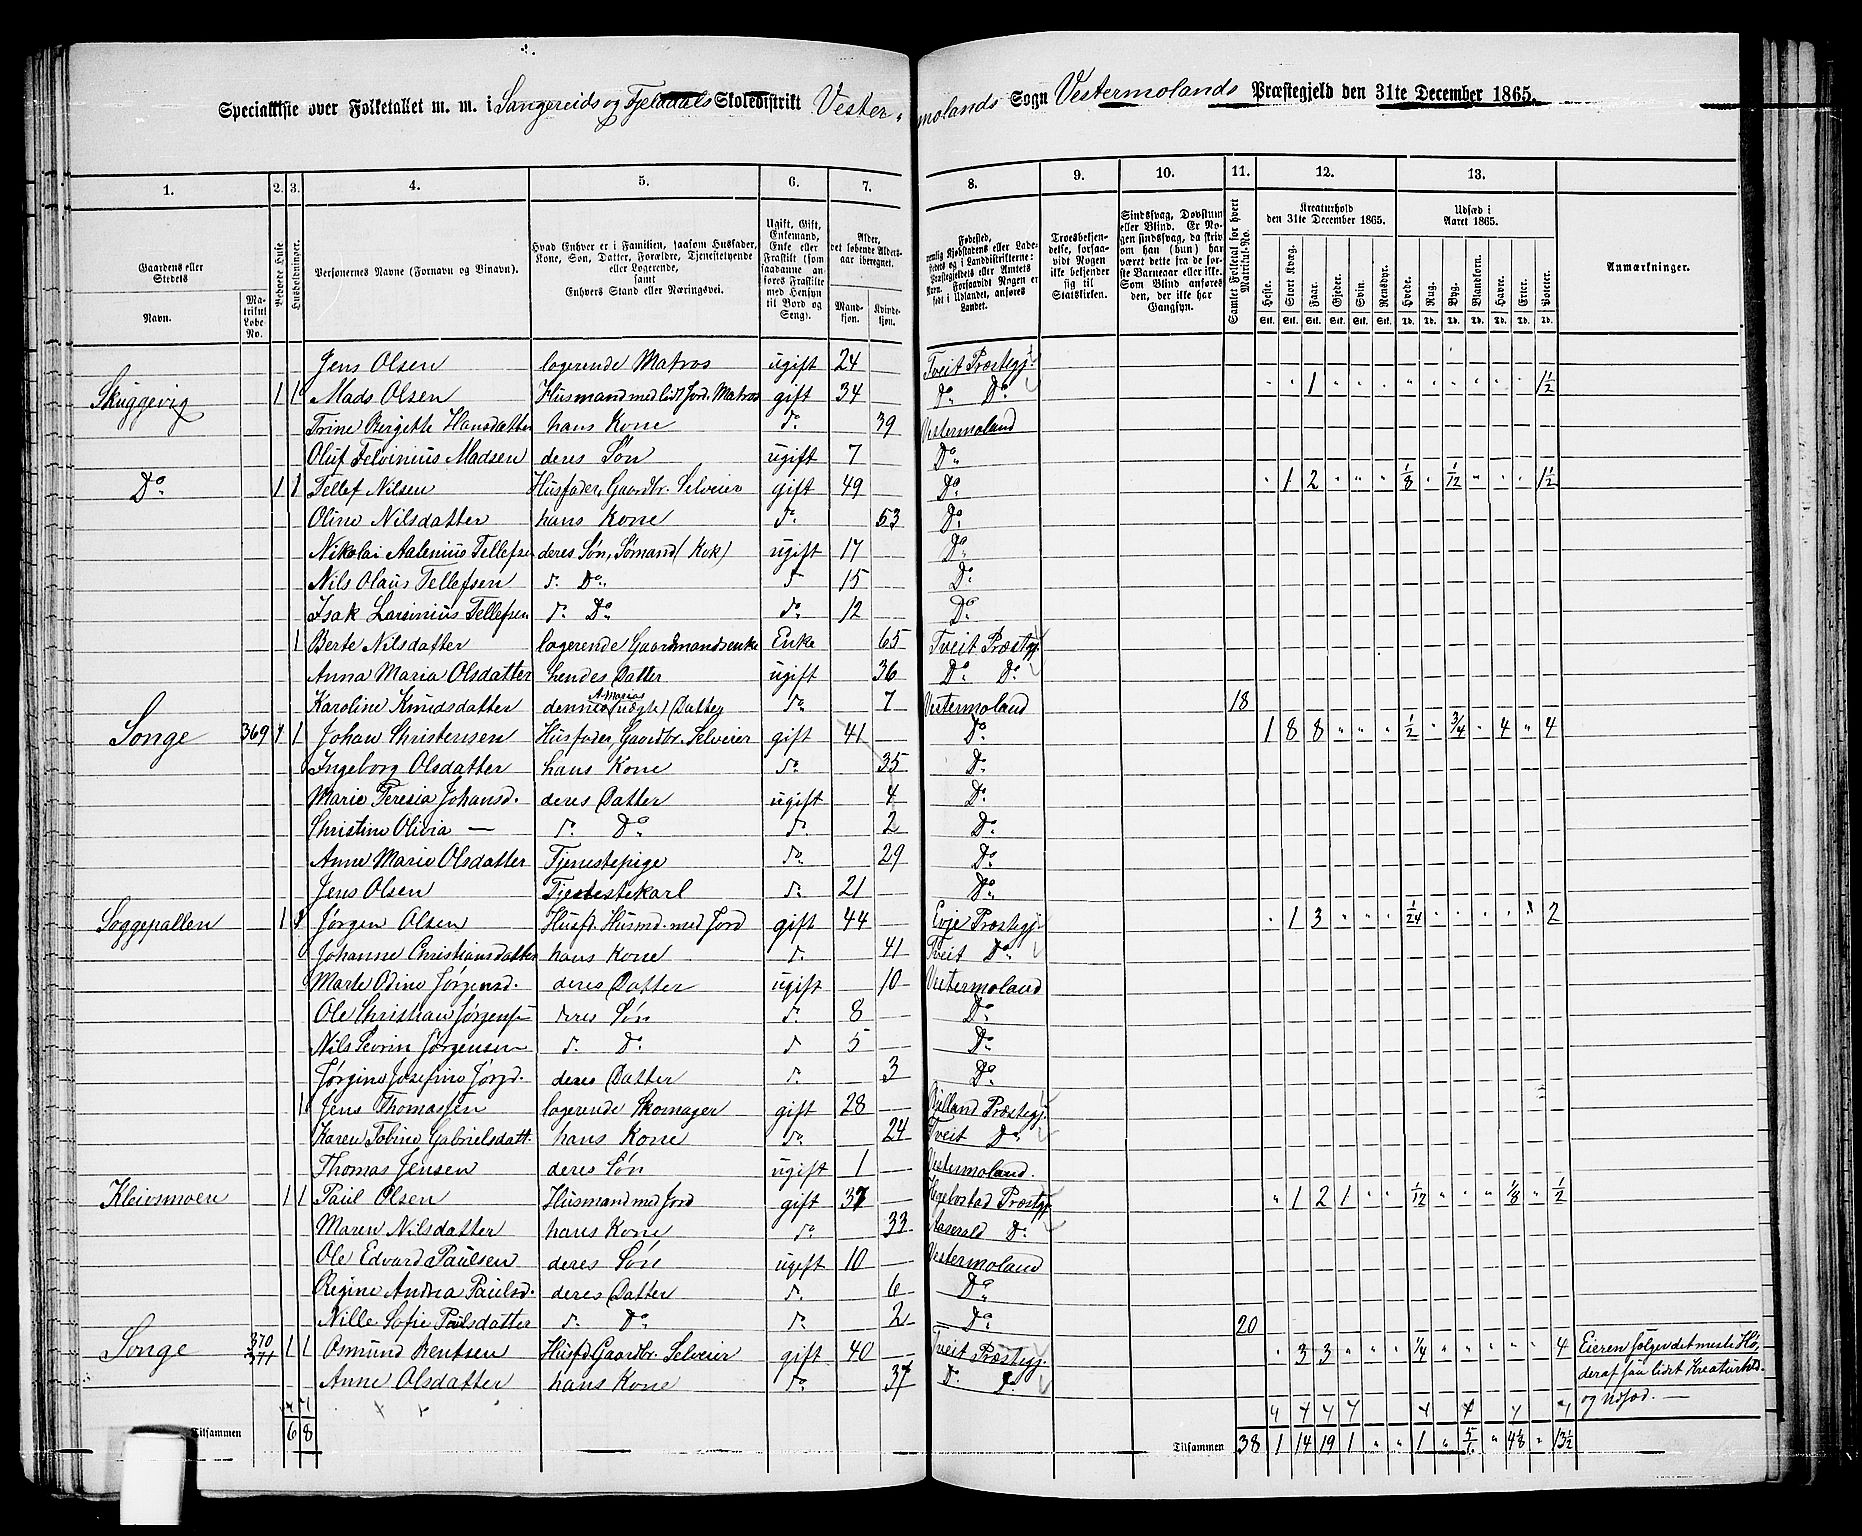 Specialliste over Folketallet m. m. i Sangereids og Fjeldals Skoledistrikt Vester- molands Sogn Vestermolands Præstegjeld den 31te December 1865.
1. 2. 3. 4. 5. 6. 7. 8. 9. 10. 11. 12. 13.
Gaardens eller Stedets Navn. Matrikul Løbe No. Beboede Huse Husholdninger. Personernes Navne (Fornavn og Tilnavn). Hvad Enhver er i Familien, saasom Husfader, Kone, Søn, Datter, Forældre, Tjenestetyende eller Logerende, samt Enhvers Stand eller Næringsvei. Ugift, Gift, Enkemand, Enke eller Fraskilt (som saadanne anføres Fraskilte med Hensyn til Bord og Seng). Alder, det løbende Aldersaar iberegnet. Mandkjøn. Kvindekjøn.
Troesbekjendelse, forsaavidt Nogen ikke bekjender sig til Statskirken. Sindssvag, Døvstum eller Blind. Samlet Folketal for hvert Matrikul-No. Kreaturhold den 31te December 1865. Udsæd i Aaret 1865. Anmærkninger.
Heste. Stort Kvæg. Faar. Gjeder. Svin. Rensdyr. Hvede. Rug. Byg. Blandkorn. Havre. Erter. Poteter.
Jens Olsen logerende Matros ugift 24 Tveit Præstegj.
Skuggevig 1 1 Mads Olsen Husmand med lidt Jord. Matros gift 34 Do Do " " 1 " " " " " " " " " 1½
Trine Birgitte Hansdatter hans Kone do 39 Vestermoland
Oluf Madsen deres Søn ugift 7 Do
Do 1 1 Tellef Nilsen Husfader, Gaardbr. Selveier gift 49 Do " 1 2 " " " 1/8 " 1/12 " " " 1½
Oline Nilsdatter hans Kone do 53 Do
Nikolai Aalenius Tellefsen deres Søn, Sømand (Kok) ugift 17 Do
Nils Olaus Tellefsen d. Do. d 15 Do
Isak Larsinius Tellefsen d. Do do 12 Do
1 Berte Nilsdatter logerende Gaardmandsenke Enke 65 Tveit Præstgj.
Anna Maria Olsdatter hendes Datter ugift 36 Do Do
Karoline Knudsdatter dennes A. Marias (uægte) Datter do 7 Vestermoland 18
Songe 369 1 1 Johan Christensen Husfader, Gaardbr. Selveier gift 41 Do 1 8 8 " " " ½ " ¾ " 4 " 4
Ingeborg Olsdatter hans Kone do 35 Do
Marie Teresia Johansd. deres Datter ugift 4 Do
Christine Olivia — d. Do d. 2 Do
Anne Marie Olsdatter Tjenestepige do 29 Do
Jens Olsen Tjenestekarl d. 21 Do
Soggepallen 1 1 Jørgen Olsen Husfd. Husmd. med Jord gift 44 Evje Præstegj. " 1 3 " " " 1/24 " " " " " 2
Johanne Christiansdatter hans Kone d. 41 Tveit Do
Marte Odine Jørgensd. deres Datter ugift 10 Vestermoland
Ole Christian Jørgens deres Søn d. 8 Do
Nils Sevrin Jørgensen d. Do d 5 Do
Jørgine Josefine Jørgd. deres Datter d. 3 Do
1 Jens Thomassen logerende Skomager gift 28 Præstegj.
Karen Tobine Gabrielsdatt. hans Kone do 24 Tveit Do
Thomas Jensen deres Søn ugift 1 Vestermoland.
Kleivsmoen 1 1 Paul Olsen Husmand med Jord gift 37 Hægebostad Præstgj. " 1 2 1 " " 1/12 " " " 1/8 " ½
Maren Nilsdatter hans Kone do 33 Aaserald Do
Ole Edvard Paulsen deres Søn ugift 10 Vestermoland
Regine Andrea Paulsd. deres Datter d. 6 Do
Nille Sofie Paulsdatter d. Do d. 2 Do 20
Songe 370 371 1 1 Osmund Bentsen Husfd. Gaardbr. Selveier gift 40 Tveit Præstegj. " 3 3 " " " ¼ " " " " " 4 Eieren sælger det meste Hø,
Anne Olsdatter hans Kone do 37 D. d. deraf saa lidet Kreaturhld.
og Udsæd. —
Tilsammen 6 8 Tilsammen 38 1 14 19 1 " " 1 " " 4⅛ " 13½